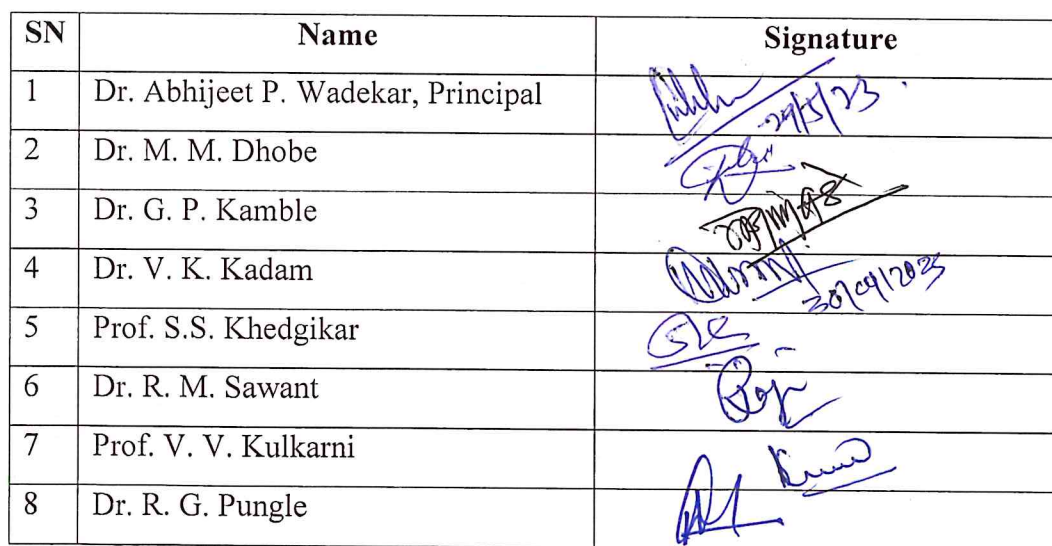 SN Name Signature
1 Dr. Abhijeet P. Wadekar, Principal
29/5/23
2 Dr. M. M. Dhobe
3 Dr. G. P. Kamble
4 Dr. V. K. Kadam
5 Prof. S.S. Khedgikar
6 Dr. R. M. Sawant
7 Prof. V. V. Kulkarni
8 Dr. R. G. Pungle